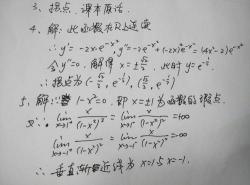 3、拐点，课本原话.
4、解：此函数在R上连续
∴y'=-2x·e^{-x²}, y''=-2e^{-x²}+(-2x)²e^{-x²}=(4x²-2)e^{-x²}
令y''=0. 解得 x=±√2/2. 此时 y=e^{-1/2}
∴拐点为(-√2/2, e^{-1/2}), (√2/2, e^{-1/2})
5、解：∵ 1-x²=0. 即 x=±1为函数的间断点.
又∵ lim_{x→-1⁻} x/(1-x²)² = lim_{x→-1⁺} x/(1-x²)² = +∞
lim_{x→1⁻} x/(1-x²)² = lim_{x→1⁺} x/(1-x²)² = ∞
∴ 垂直渐近线为 x=1与x=-1.